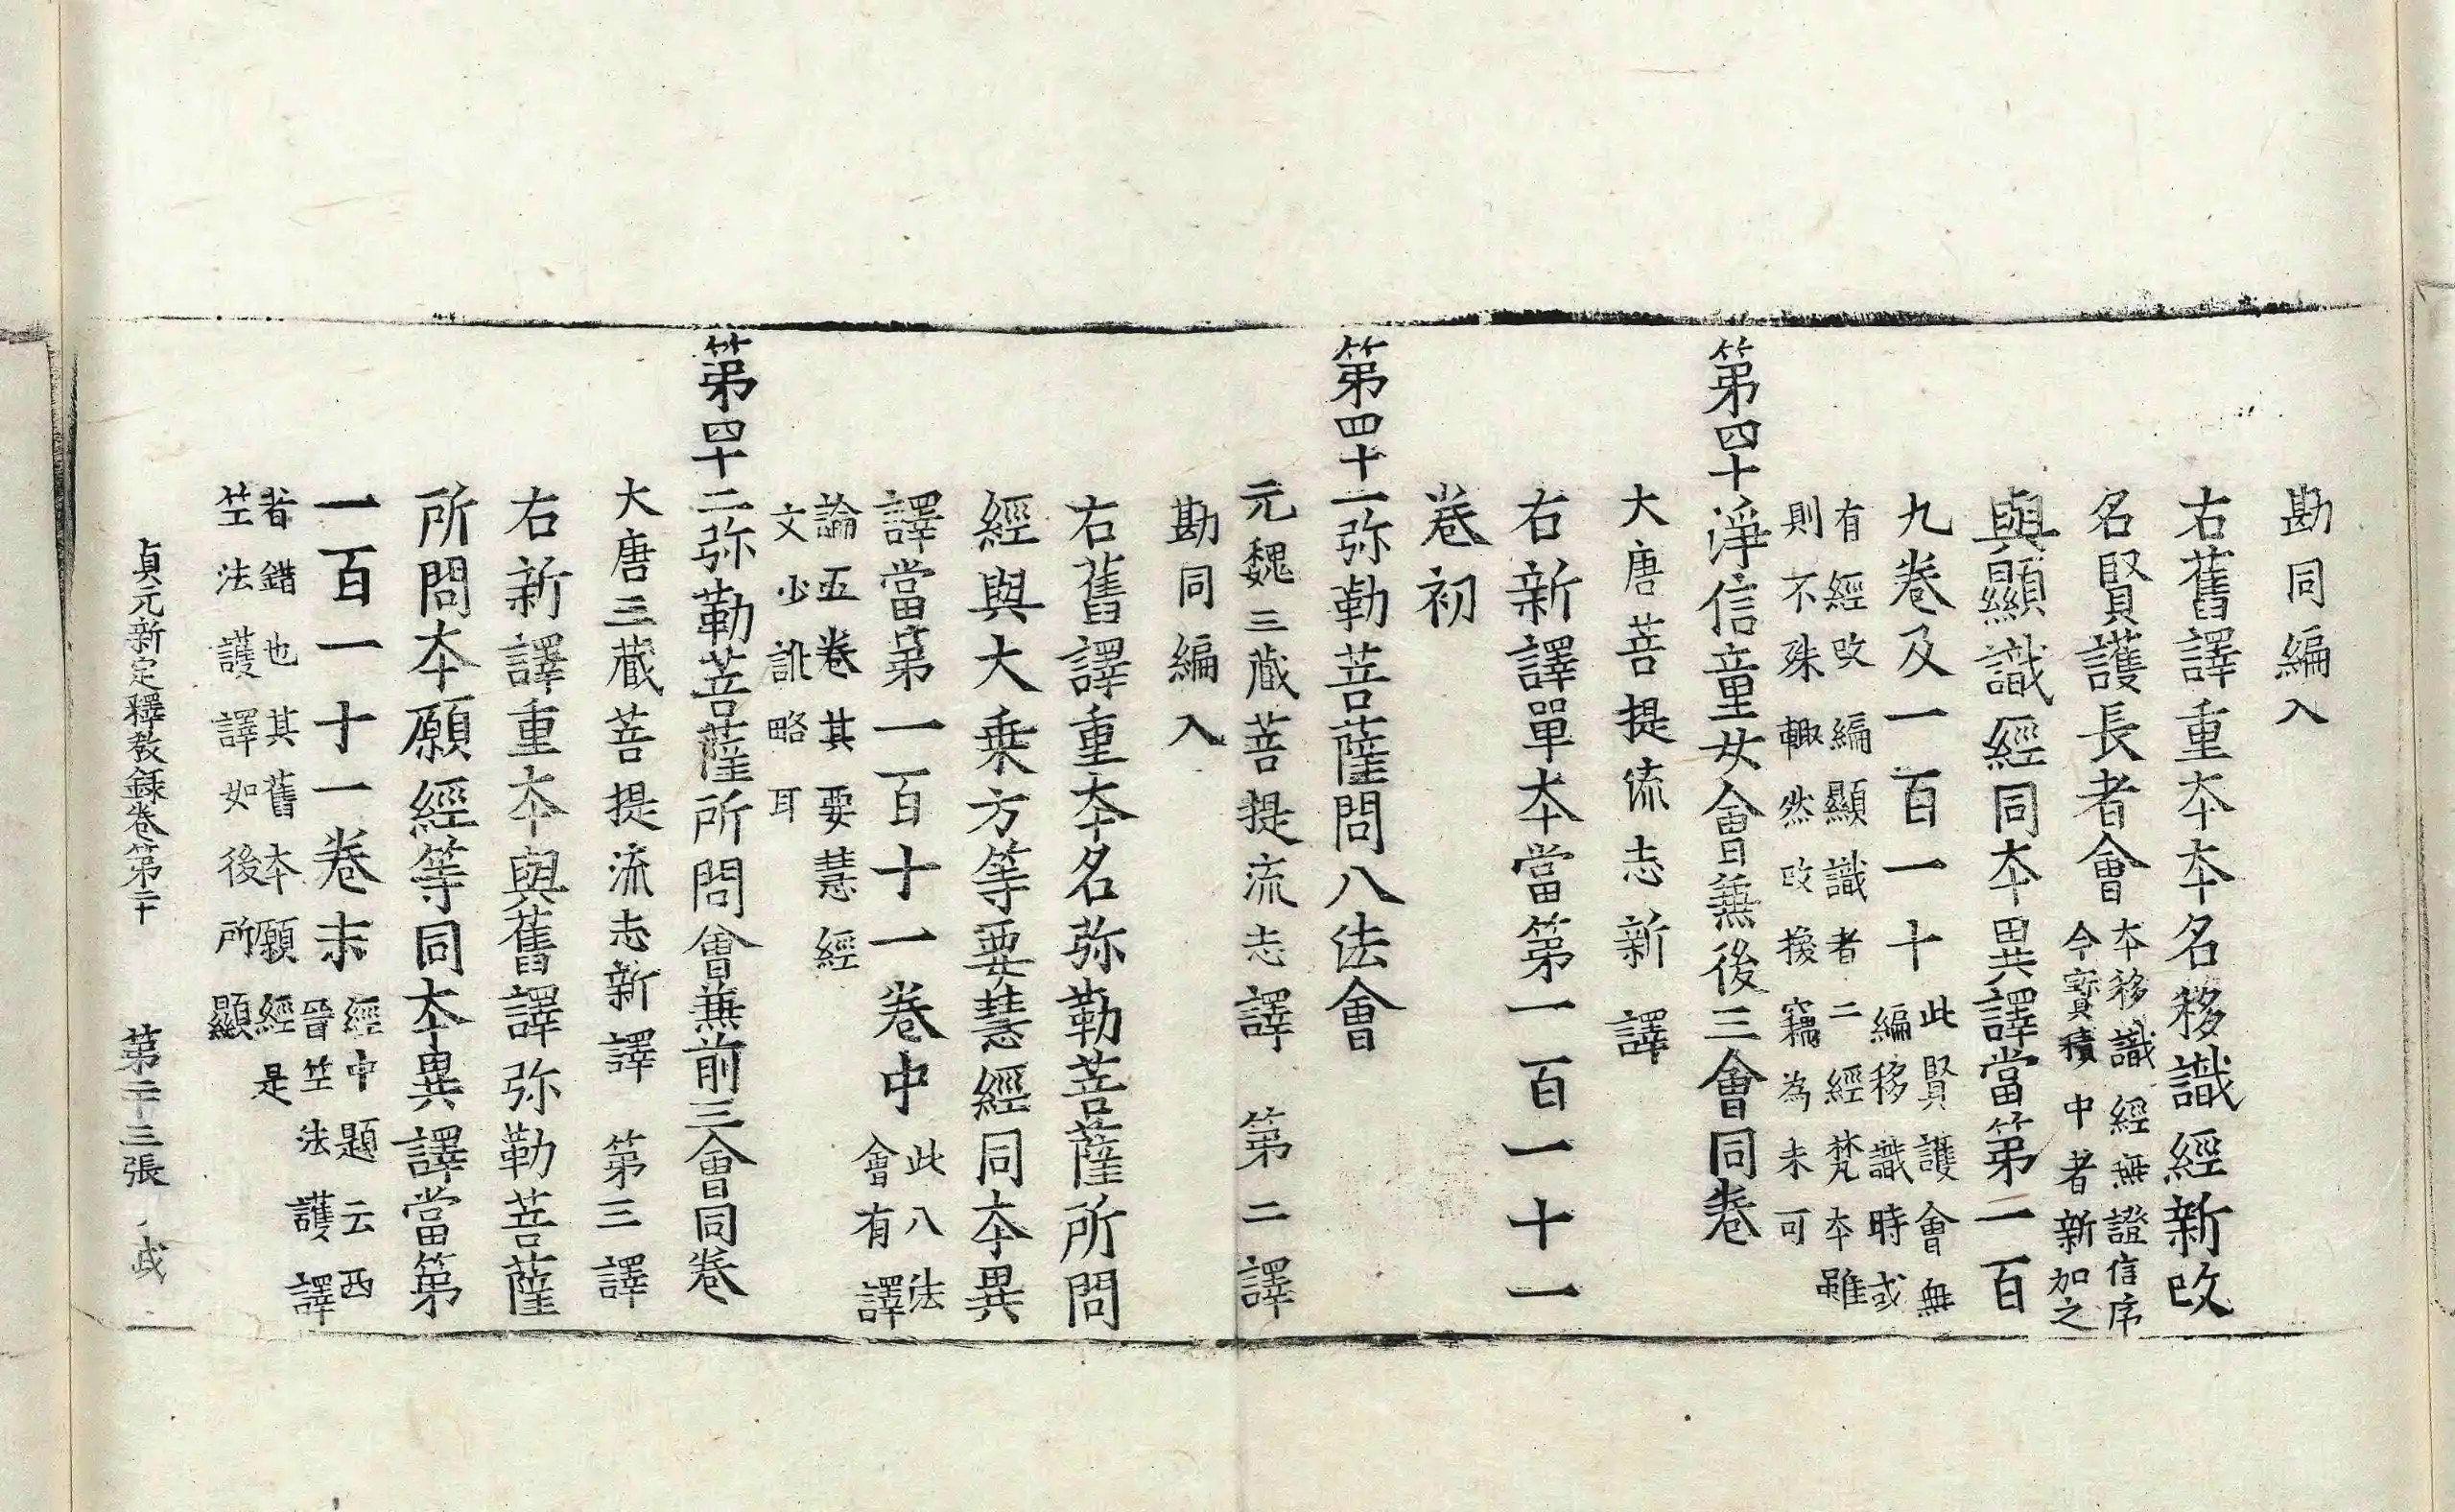 勘同編入
右舊譯重夲夲名移識經新改
名賢護長者會夲移識經無證信序
今寶積中者新加之
與顯識經同夲異譯當第一百
九卷及一百一十此賢護會無
編移識時或
有經改編顯識者二經梵夲雖
則不殊輙然改換竊為未可
第四十淨信童女會兼後三會同卷
大唐菩提流志新譯
右新譯單夲當第一百一十一
卷初
第四十一弥勒菩薩問八法會
元魏三藏菩提流志譯 第二譯
勘同編入
右舊譯重夲名弥勒菩薩所問
經與大乗方等要慧經同夲異
譯當第一百一十一卷中此八法
會有譯
論五卷其要慧經
文少訛略耳
第四十二弥勒菩薩所問會兼前三會同卷
大唐三藏菩提流志新譯 第三譯
右新譯重夲與舊譯弥勒菩薩
所問夲願經等同夲異譯當第
一百一十一卷末經中題云西
晉竺法護譯
者錯也其舊夲願經是
竺法護譯如後所顯
貞元新定釋教錄卷第二十 第二十三張